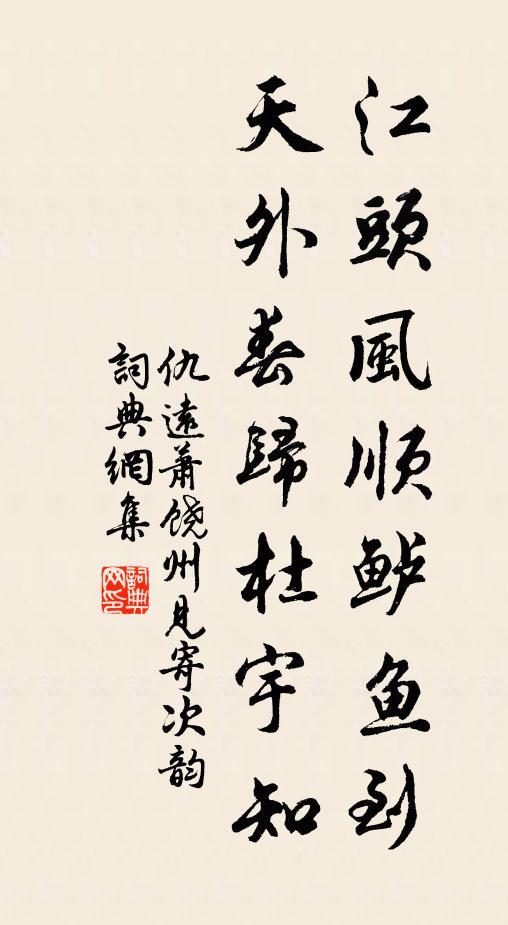 江頭風順鲈鱼到
天外春歸杜宇知
仇遠蕭饶州見寄次韵
詞典網集
詞典網印